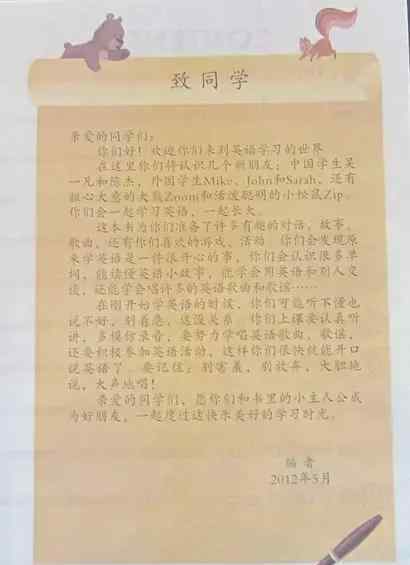 致同学
亲爱的同学们:
你们好!欢迎你们来到英语学习的世界
在这里你们将认识几个新朋友:中国学生吴
一凡和陈杰,外国学生Mike、John和Sarah,还有
粗心大意的大熊Zoom和活泼聪明的小松鼠Zip。
你们会一起学习英语,一起长大。
这本书为你们准备了许多有趣的对话、故事、
歌曲,还有你们喜欢的游戏、活动。你们会发现原
来学英语是一件很开心的事,你们会认识很多单
词,能读懂英语小故事,能学会用英语和别人交
谈,还能学会唱许多的英语歌曲和歌谣……
在刚开始学英语的时候,你们可能听不懂也
说不好,别着急,这没关系。你们上课要认真听
讲,多模仿录音,要努力学唱英语歌曲、歌谣,
还要积极参加英语活动,这样你们很快就能开口
说英语了。要记住:别害羞,别放弃,大胆地
说,大声地唱!
亲爱的同学们,愿你们和书里的小主人公成
为好朋友,一起度过这快乐美好的学习时光。
编者
2012年5月